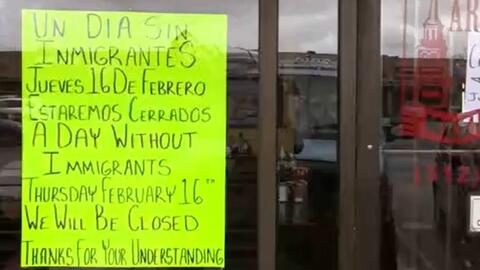 UN DIA SIN
INMIGRANTES
JUEVES 16 DE FEBRERO
ESTAREMOS CERRADOS
A DAY WITHOUT
IMMIGRANTS
THURSDAY FEBRUARY 16TH
WE WILL BE CLOSED
THANKS FOR YOUR UNDERSTANDING